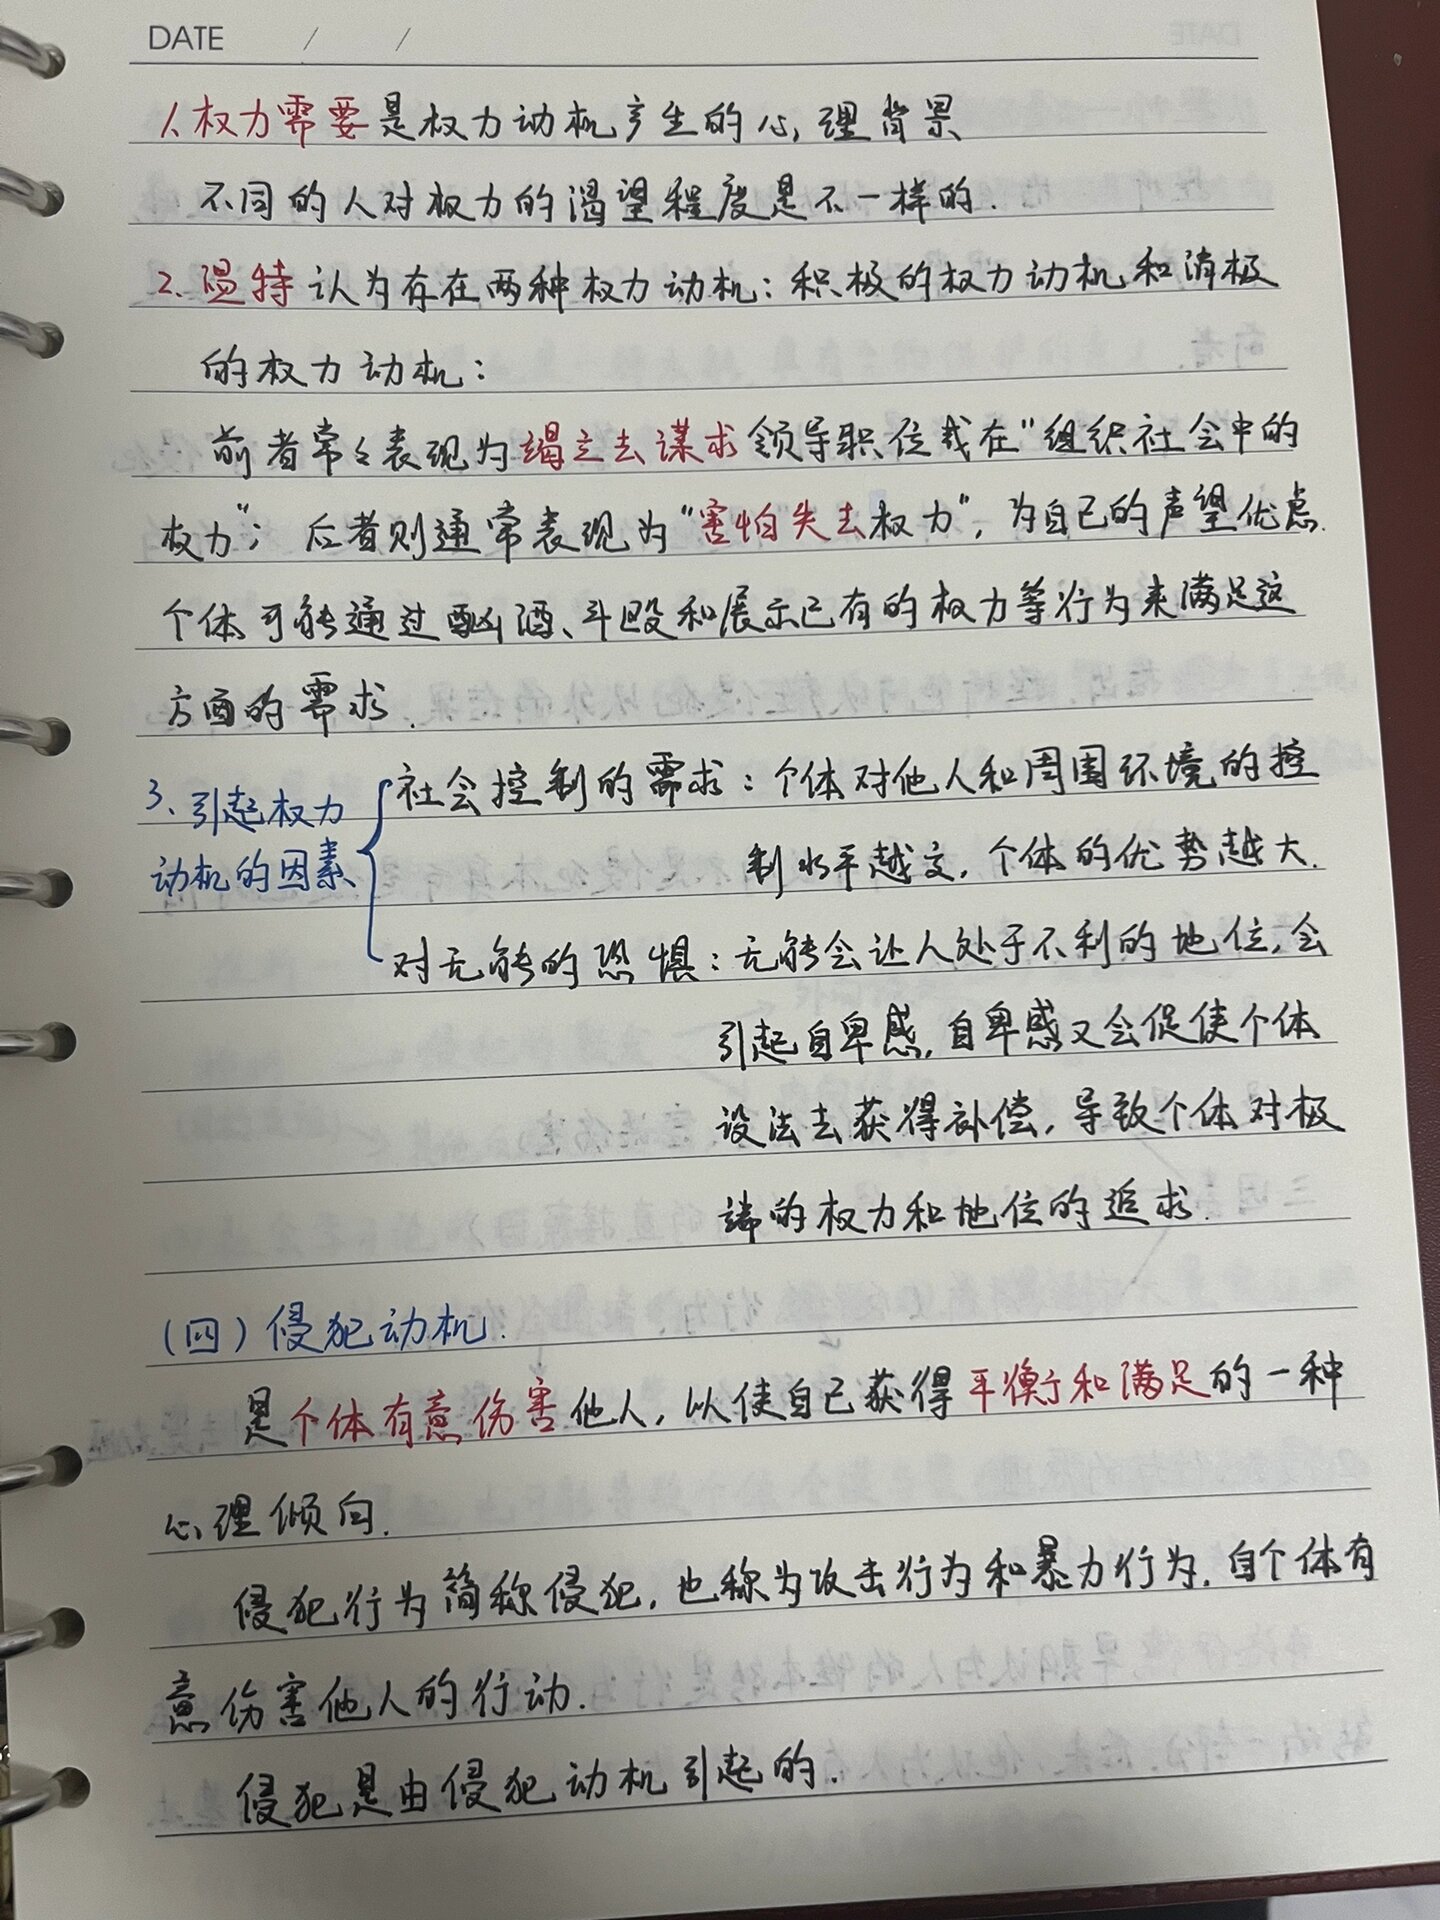 DATE / /
1.权力需要是权力动机产生的心理背景
不同的人对权力的渴望程度是不一样的.
2.温特认为存在两种权力动机:积极的权力动机和消极
的权力动机:
前者常々表现为竭立去谋求领导职位或在"组织社会中的
权力";后者则通常表现为"害怕失去权力",为自己的声望优虑.
个体可能通过酗酒、斗殴和展示已有的权力等行为来满足这
方面的需求.
3、引起权力 社会控制的需求:个体对他人和周围环境的控
动机的因素 制水平越交,个体的优势越大.
对无能的恐惧:无能会让人处于不利的地位,会
引起自卑感,自卑感又会促使个体
设法去获得补偿,导致个体对极
端的权力和地位的追求.
(四)侵犯动机.
是个体有意伤害他人,以使自己获得平衡和满足的一种
心理倾向.
侵犯行为简称侵犯,也称为攻击行为和暴力行为.自个体有
意伤害他人的行动.
侵犯是由侵犯动机引起的.